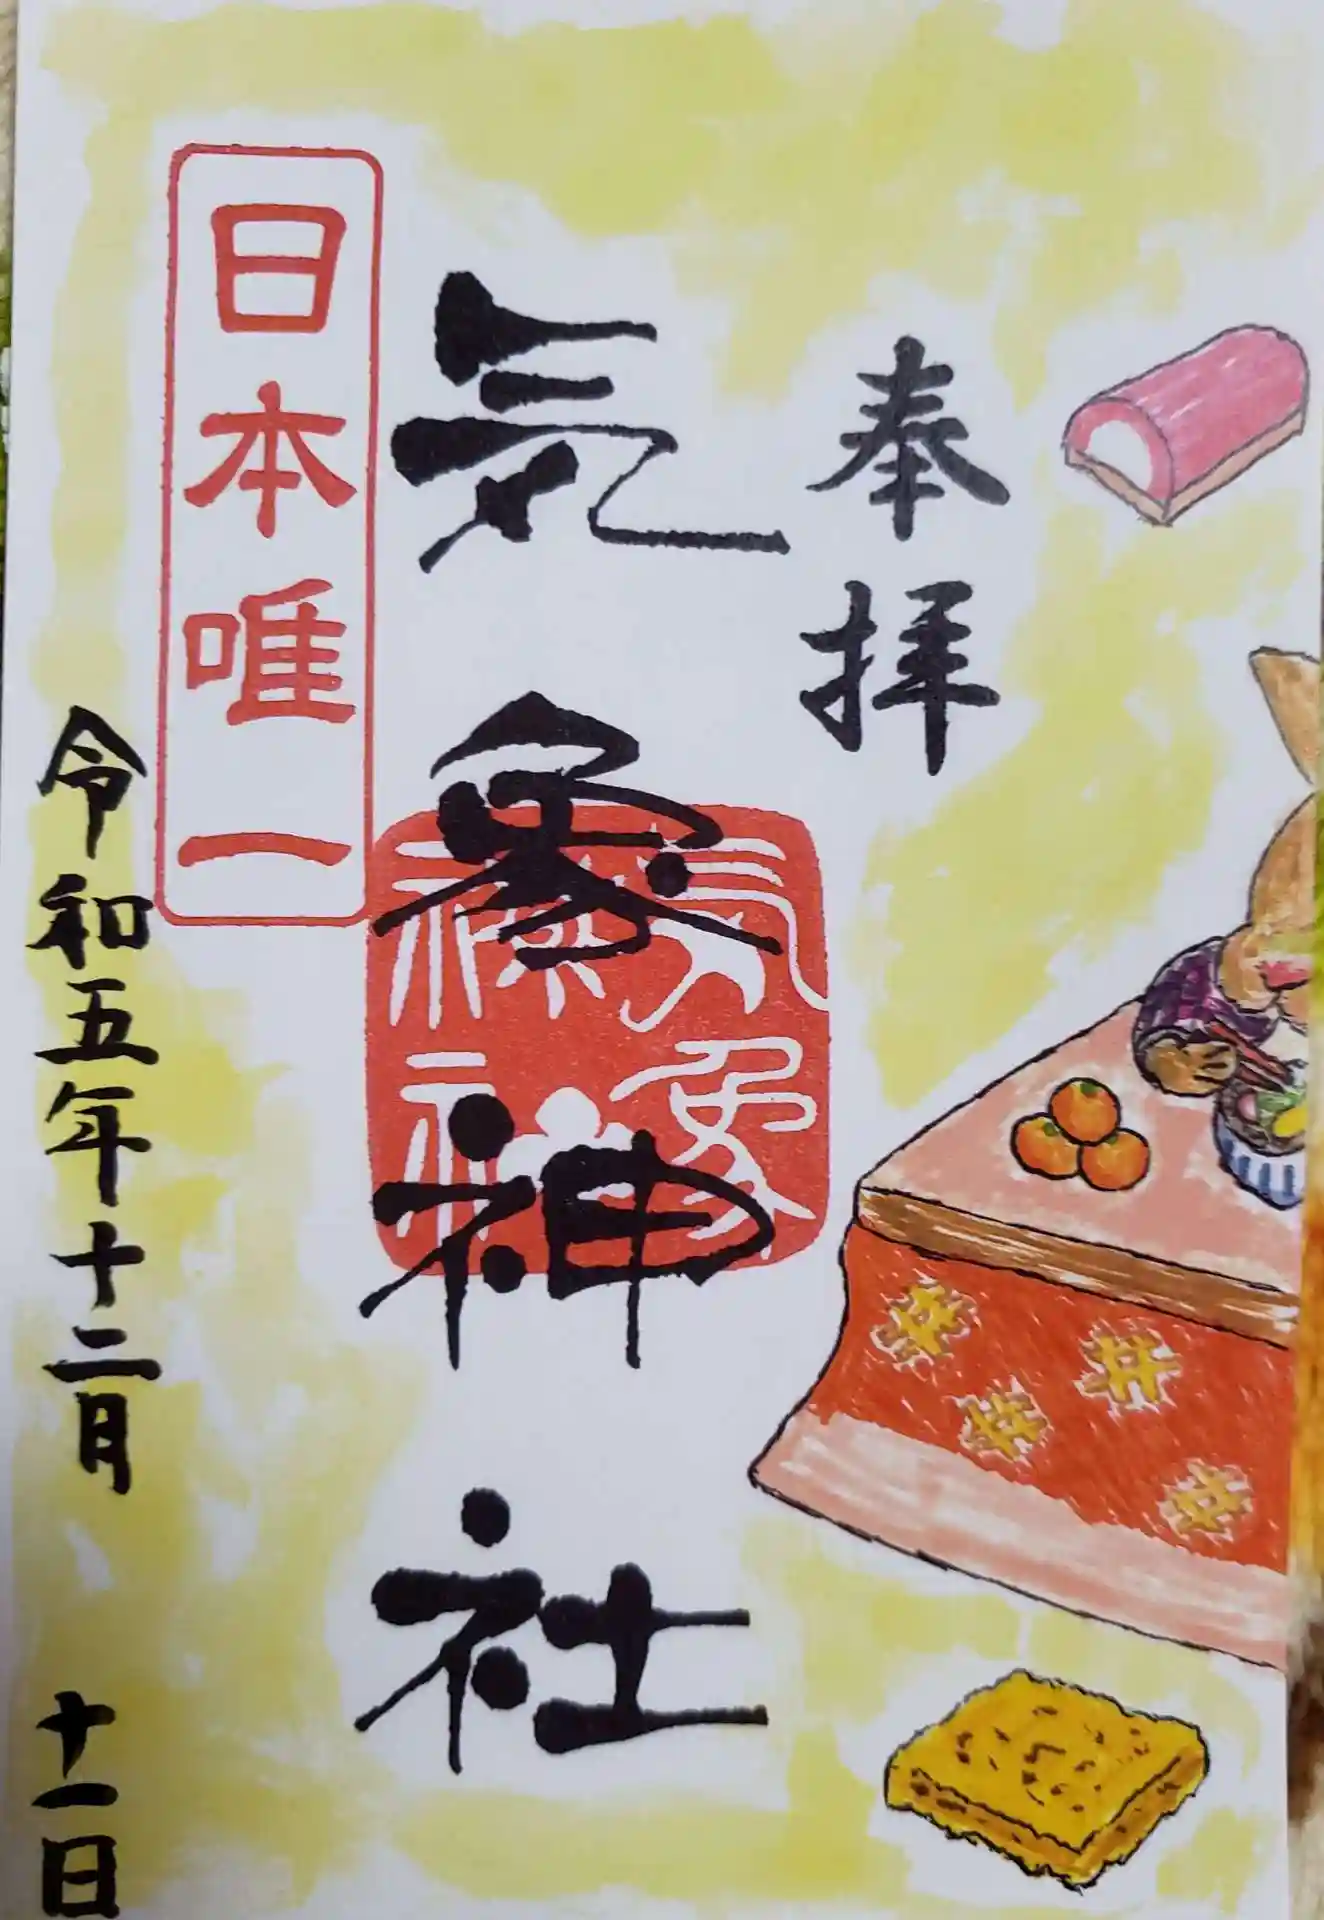 奉拝
気象神社
気象
神社
日本唯一
令和五年十二月十一日